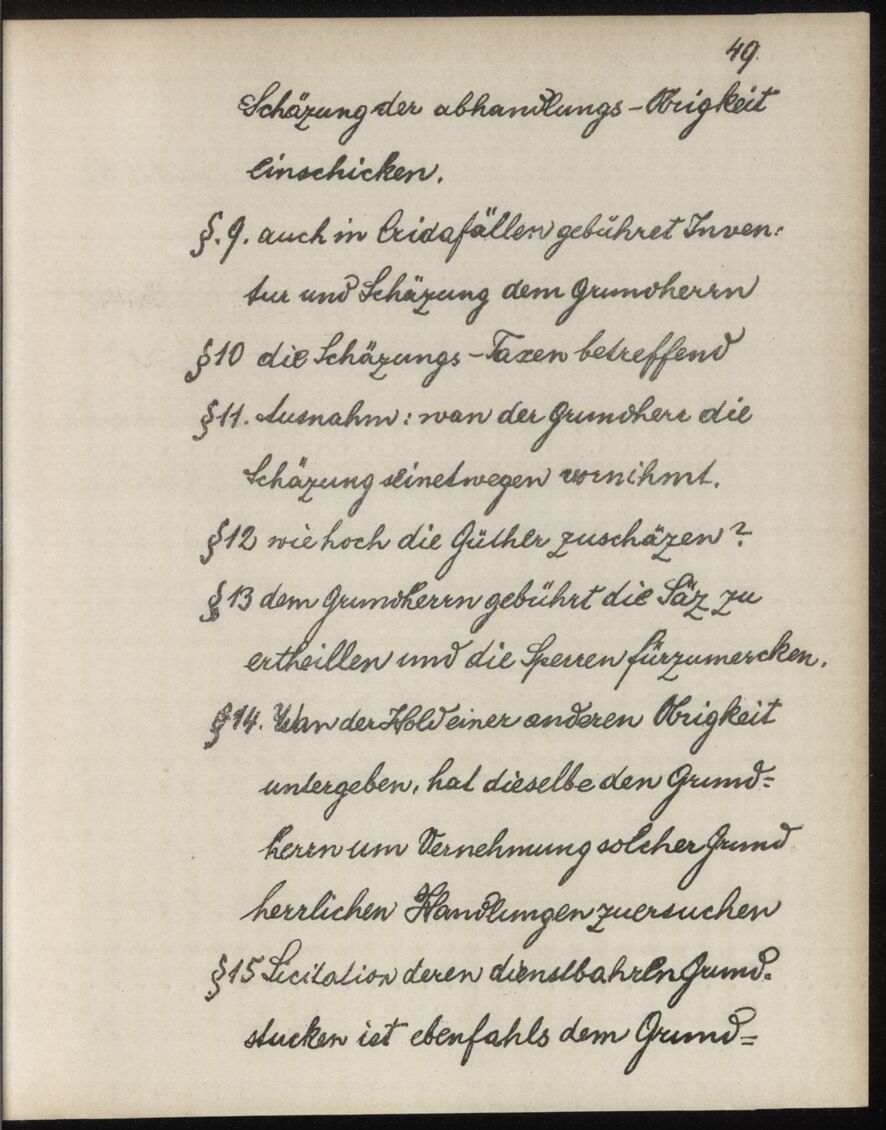 49.
Schäzung der abhandlungs-Obrigkeit
einschicken.
§. 9. auch in Cridafällen gebühret Inven:
tur und Schäzung dem Grundherrn
§10 die Schäzungs-Taxen betreffend
§11. Ausnahm: wan der Grundherr die
Schäzung seinetwegen vornihmt.
§12 wie hoch die Güthlr zuschäzen?
§13 dem Grundherrn gebührt die Säz zu
ertheillen und die Sperren fürzumercken.
§14. Wan der Hold einer anderen Obrigkeit
untergeben, hat dieselbe den Grund=
herrn um Vernehmung solcher Grund
herrlichen Handlungen zuersuchen
§15 Licitation deren dienstbahren Grund=
stucken ist ebenfahls dem Grund=